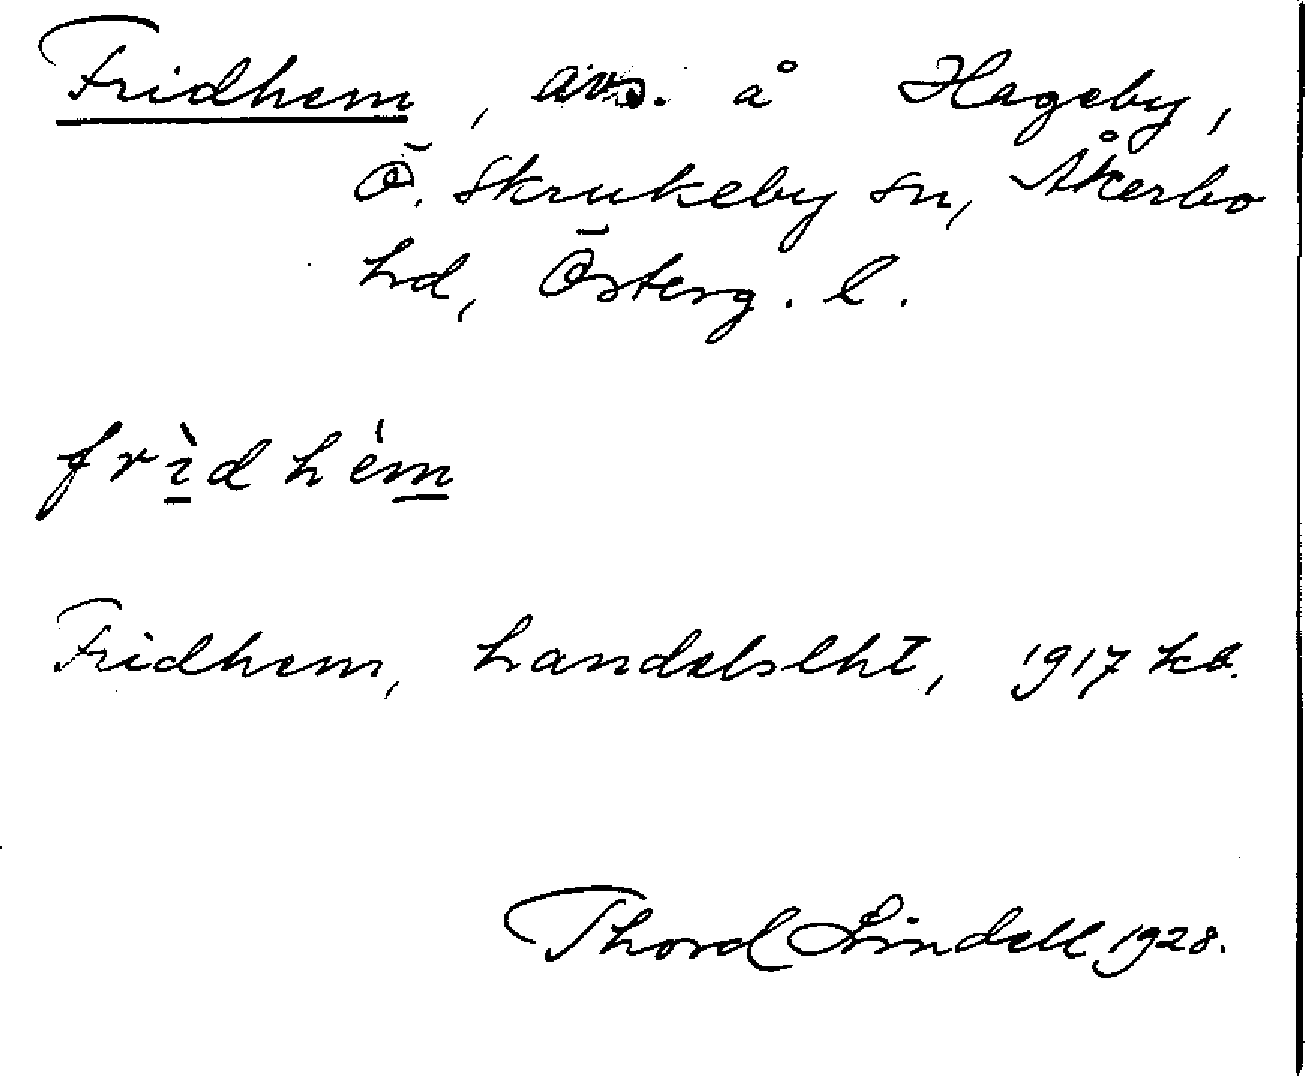 Fridhem, avs. å Hageby,
Ö. Skrukeby sn, Åkerbo
hd, Österg. l.
frìdhém
Fridhem, handelslht, 1917 kb.
Thord Lindell 1928.